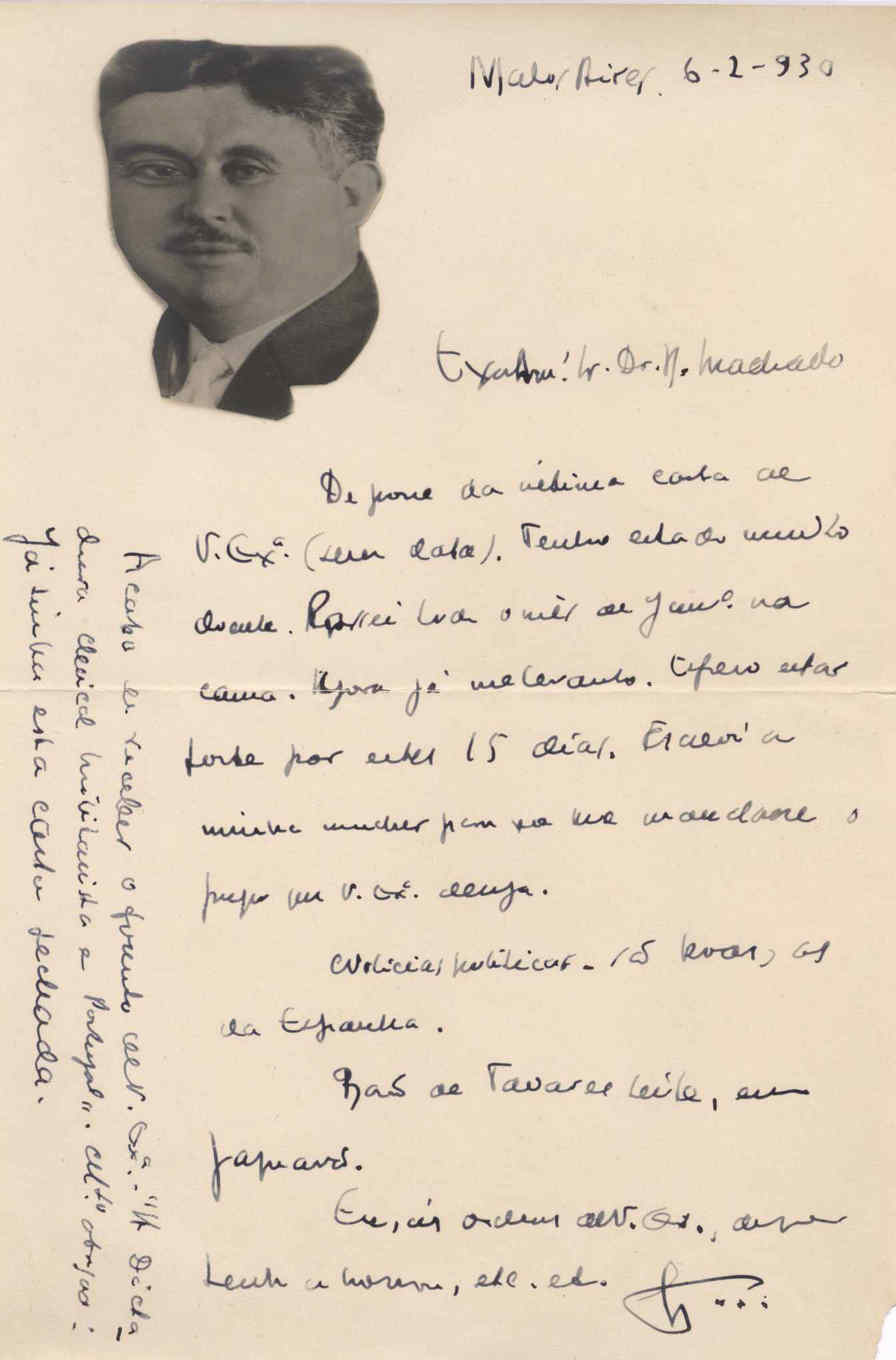 6-2-930
Dr. B. Machado
De posse da última carta de
V. Exª. (sem data). Tenho estado muito
doente. Passei todo o mês de Janº. na
cama. Agora já me levanto. Espero estar
forte por estes 15 dias. Escrevi a
minha mulher para me mandasse o
que V. Exª. deseja.
Noticias politicas - só boas, as
da Espanha.
de Tavares Leite, em
Jaguarão.
Eu, ás ordens de V. Ex.,
tenho a honra, etc. etc.
Acabo de receber o de V. Exª. - "A Dicta-
dura clerical militarista e Portugal". Mto. obrigado:
Já tinha esta carta fechada.